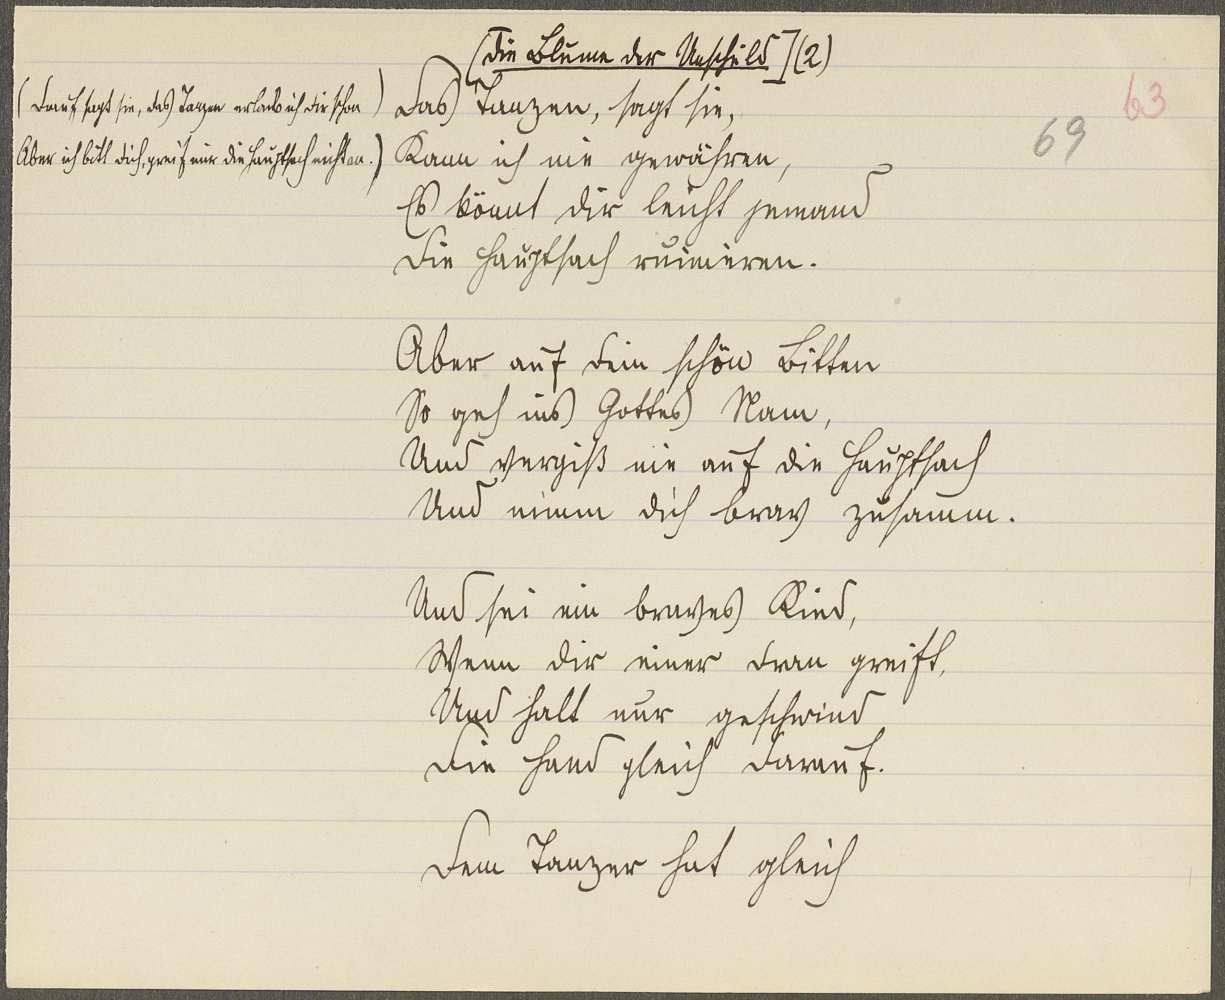 [Die Blume der Unschuld] (2)
63
69
(Drauf sagt sie, das Tanzen erlaub ich dir schon)
Aber ich bitt dich, greif nur die Hauptsach nicht an.)
Das Tanzen, sagt sie,
Kann ich nie gewähren,
Es könnt dir leicht jemand
Die Hauptsach ruinieren.
Aber auf dein schön Bitten
So geh ins Gottes Nam,
Und vergiß nie auf die Hauptsach
Und nimm dich brav zusamm.
Und sei ein braves Kind,
Wenn dir einer dran greift,
Und halt nur geschwind
Die Hand gleich darauf.
Dem Tanzer hat gleich